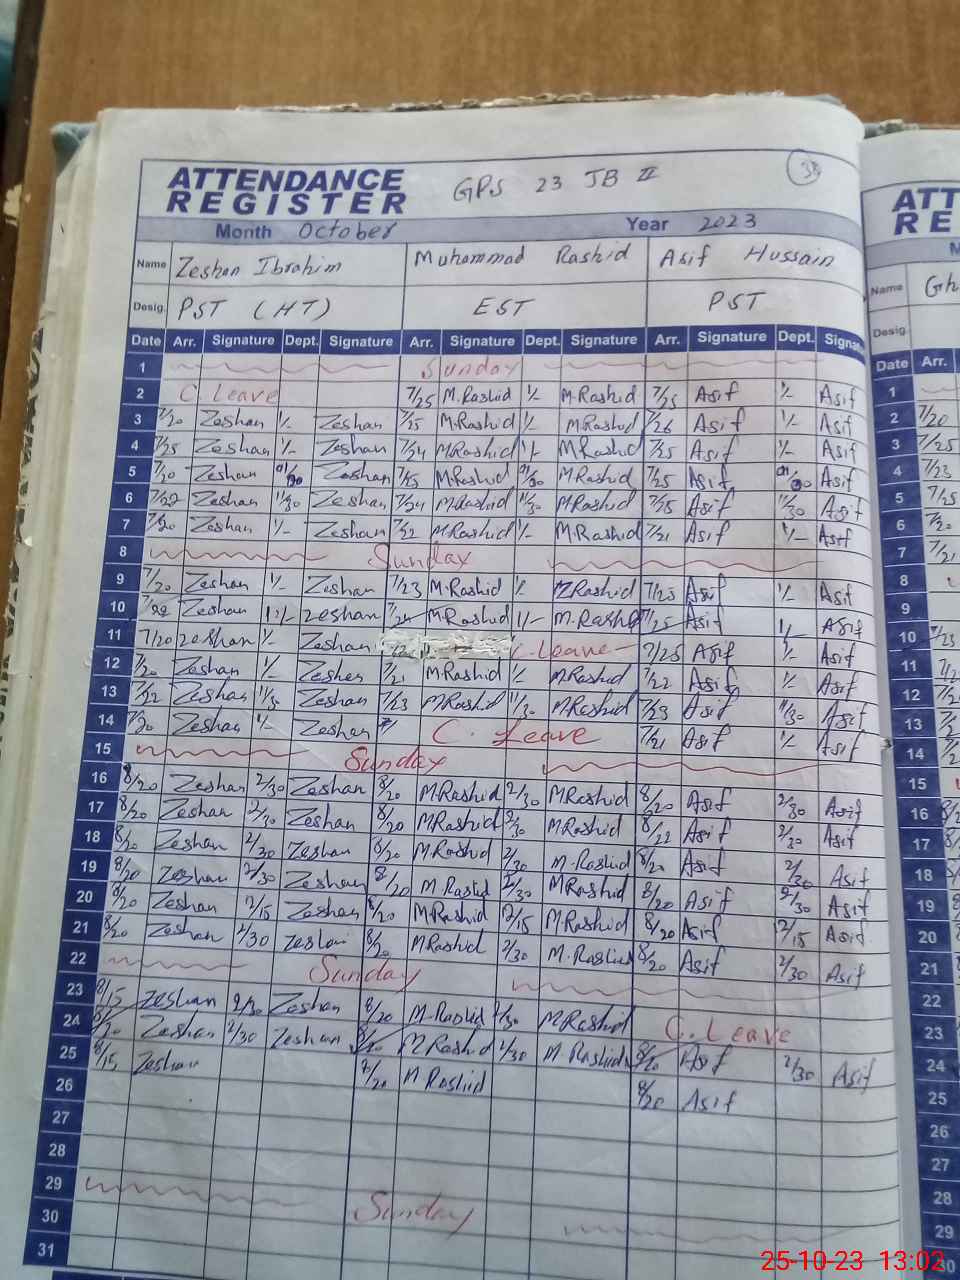 ATTENDANCE REGISTER GPS 23 JB II 38
Month October Year 2023
Name Zeshan Ibrahim Muhammad Rashid Asif Hussain
Desig. PST (HT) EST PST
Date Arr. Signature Dept. Signature Arr. Signature Dept. Signature Arr. Signature Dept. Signature
1 Sunday
2 C. Leave 7/25 M.Rashid 1/- M.Rashid 7/25 Asif 1/- Asif
3 7/20 Zeshan 1/- Zeshan 7/25 M.Rashid 1/- M.Rashid 7/26 Asif 1/- Asif
4 7/25 Zeshan 1/- Zeshan 7/24 M.Rashid 1/- M.Rashid 7/25 Asif 1/- Asif
5 7/20 Zeshan 01/30 Zeshan 7/25 M.Rashid 01/30 M.Rashid 7/25 Asif 01/30 Asif
6 7/22 Zeshan 11/30 Zeshan 7/24 M.Rashid 11/30 M.Rashid 7/25 Asif 11/30 Asif
7 7/20 Zeshan 1/- Zeshan 7/22 M.Rashid 1/- M.Rashid 7/21 Asif 1/- Asif
8 Sunday
9 7/20 Zeshan 1/- Zeshan 7/23 M.Rashid 1/- M.Rashid 7/23 Asif 1/- Asif
10 7/22 Zeshan 1/- Zeshan 7/24 M.Rashid 1/- M.Rashid 7/25 Asif 1/- Asif
11 7/20 Zeshan 1/- Zeshan C. Leave 7/25 Asif 1/- Asif
12 7/20 Zeshan 1/- Zeshan 7/21 M.Rashid 1/- M.Rashid 7/22 Asif 1/- Asif
13 7/22 Zeshan 11/30 Zeshan 7/23 M.Rashid 11/30 M.Rashid 7/23 Asif 11/30 Asif
14 7/20 Zeshan 1/- Zeshan C. Leave 7/21 Asif 1/- Asif
15 Sunday
16 8/20 Zeshan 2/30 Zeshan 8/20 M.Rashid 2/30 M.Rashid 8/20 Asif 2/30 Asif
17 8/20 Zeshan 2/30 Zeshan 8/20 M.Rashid 2/30 M.Rashid 8/22 Asif 2/30 Asif
18 8/20 Zeshan 2/30 Zeshan 8/20 M.Rashid 2/30 M.Rashid 8/20 Asif 2/30 Asif
19 8/20 Zeshan 2/30 Zeshan 8/20 M.Rashid 2/30 M.Rashid 8/20 Asif 2/30 Asif
20 8/20 Zeshan 12/15 Zeshan 8/20 M.Rashid 12/15 M.Rashid 8/20 Asif 12/15 Asif
21 8/20 Zeshan 2/30 Zeshan 8/20 M.Rashid 2/30 M.Rashid 8/20 Asif 2/30 Asif
22 Sunday
23 8/15 Zeshan 2/30 Zeshan 8/20 M.Rashid 2/30 M.Rashid C. Leave
24 8/20 Zeshan 2/30 Zeshan 8/20 M.Rashid 2/30 M.Rashid 8/20 Asif 2/30 Asif
25 8/15 Zeshan 8/20 M.Rashid 8/20 Asif
26
27
28
29 Sunday
30
31
ATT
RE
Name Gh
Desig.
Date Arr.
1
2 7/20
3 7/25
4 7/23
5 7/25
6 7/20
7 7/21
8
9
10 7/23
11
12
13
14
15
16
17
18
19
20
21
22
23
24
25
26
27
28
29
30
25-10-23 13:02